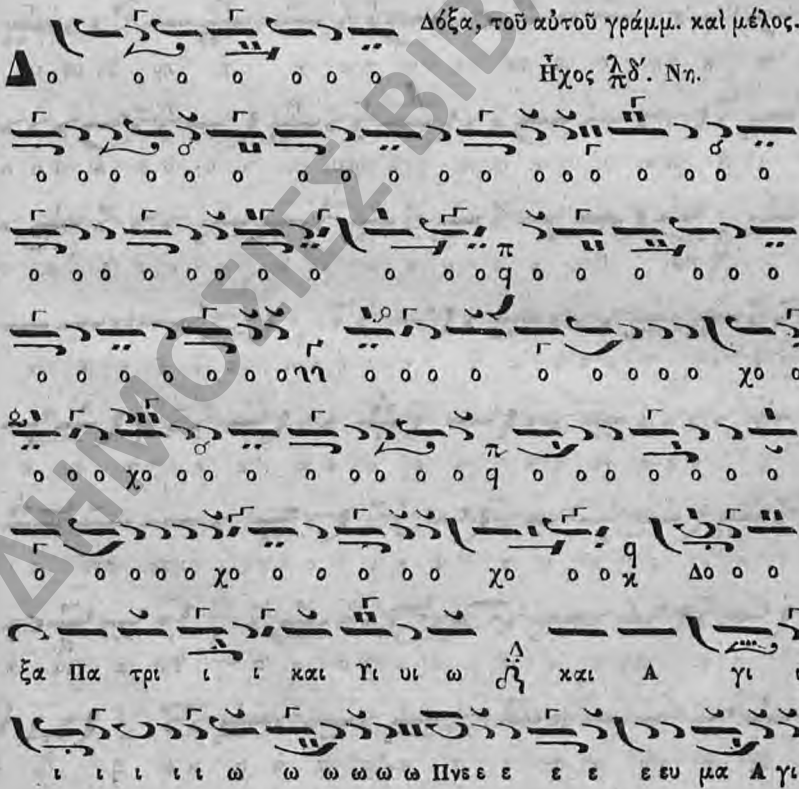 Δόξα, τοῦ αὐτοῦ γράμμ. καὶ μέλος.
Ἦχος λ π δʹ. Νη.
Δ ο ο ο ο ο ο ο
ο ο ο ο ο ο ο ο ο ο ο ο ο ο ο ο ο ο
ο ο ο ο ο ο ο ο ο ο ο ο π q ο ο ο ο ο ο
ο ο ο ο ο ο ο ο ο ο ο ο ο ο ο ο ο ο χο ο
ο ο ο χο ο ο ο ο ο ο ο ο π q ο ο ο ο ο ο ο ο
ο ο ο ο ο χο ο ο ο ο ο ο χο ο ο q κ Δο ο ο
ξα Πα τρι ι ι και Υι υι ω Δ και Α γι ι
ι ι ι ι ι ω ω ω ω ω ω Πνε ε ε ε ε ε ευ μα Α γι
ΔΗΜΟΣΙΕΣ ΒΙΒΛ